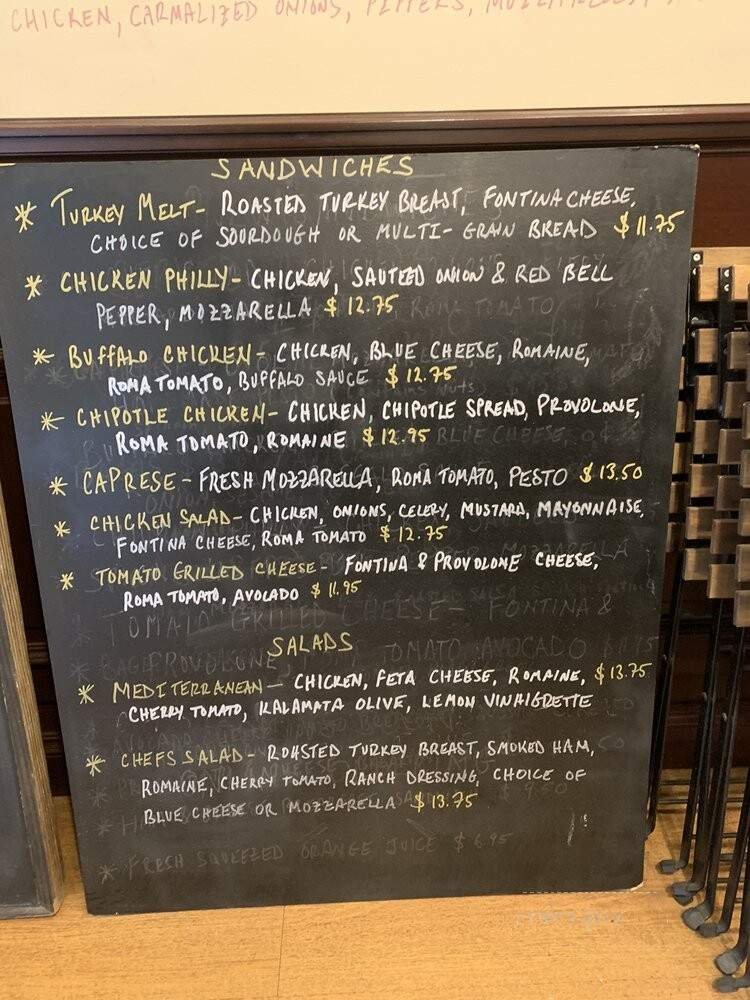 CHICKEN, CARMALIZED ONIONS, PEPPERS,
SANDWICHES
* TURKEY MELT- ROASTED TURKEY BREAST, FONTINA CHEESE,
CHOICE OF SOURDOUGH OR MULTI-GRAIN BREAD $11.75
* CHICKEN PHILLY- CHICKEN, SAUTEED ONION & RED BELL
PEPPER, MOZZARELLA $12.75
* BUFFALO CHICKEN- CHICKEN, BLUE CHEESE, ROMAINE,
ROMA TOMATO, BUFFALO SAUCE $12.75
* CHIPOTLE CHICKEN- CHICKEN, CHIPOTLE SPREAD, PROVOLONE,
ROMA TOMATO, ROMAINE $12.95
* CAPRESE- FRESH MOZZARELLA, ROMA TOMATO, PESTO $13.50
* CHICKEN SALAD- CHICKEN, ONIONS, CELERY, MUSTARD, MAYONNAISE,
FONTINA CHEESE, ROMA TOMATO $12.75
* TOMATO GRILLED CHEESE- FONTINA & PROVOLONE CHEESE,
ROMA TOMATO, AVOCADO $11.95
TOMATO GRILLED CHEESE- FONTINA &
SALADS
PROVOLONE TOMATO AVOCADO
* MEDITERRANEAN- CHICKEN, FETA CHEESE, ROMAINE, $13.75
CHERRY TOMATO, KALAMATA OLIVE, LEMON VINAIGRETTE
* CHEFS SALAD- ROASTED TURKEY BREAST, SMOKED HAM,
ROMAINE, CHERRY TOMATO, RANCH DRESSING, CHOICE OF
BLUE CHEESE OR MOZZARELLA $13.75
* FRESH SQUEEZED ORANGE JUICE $6.95